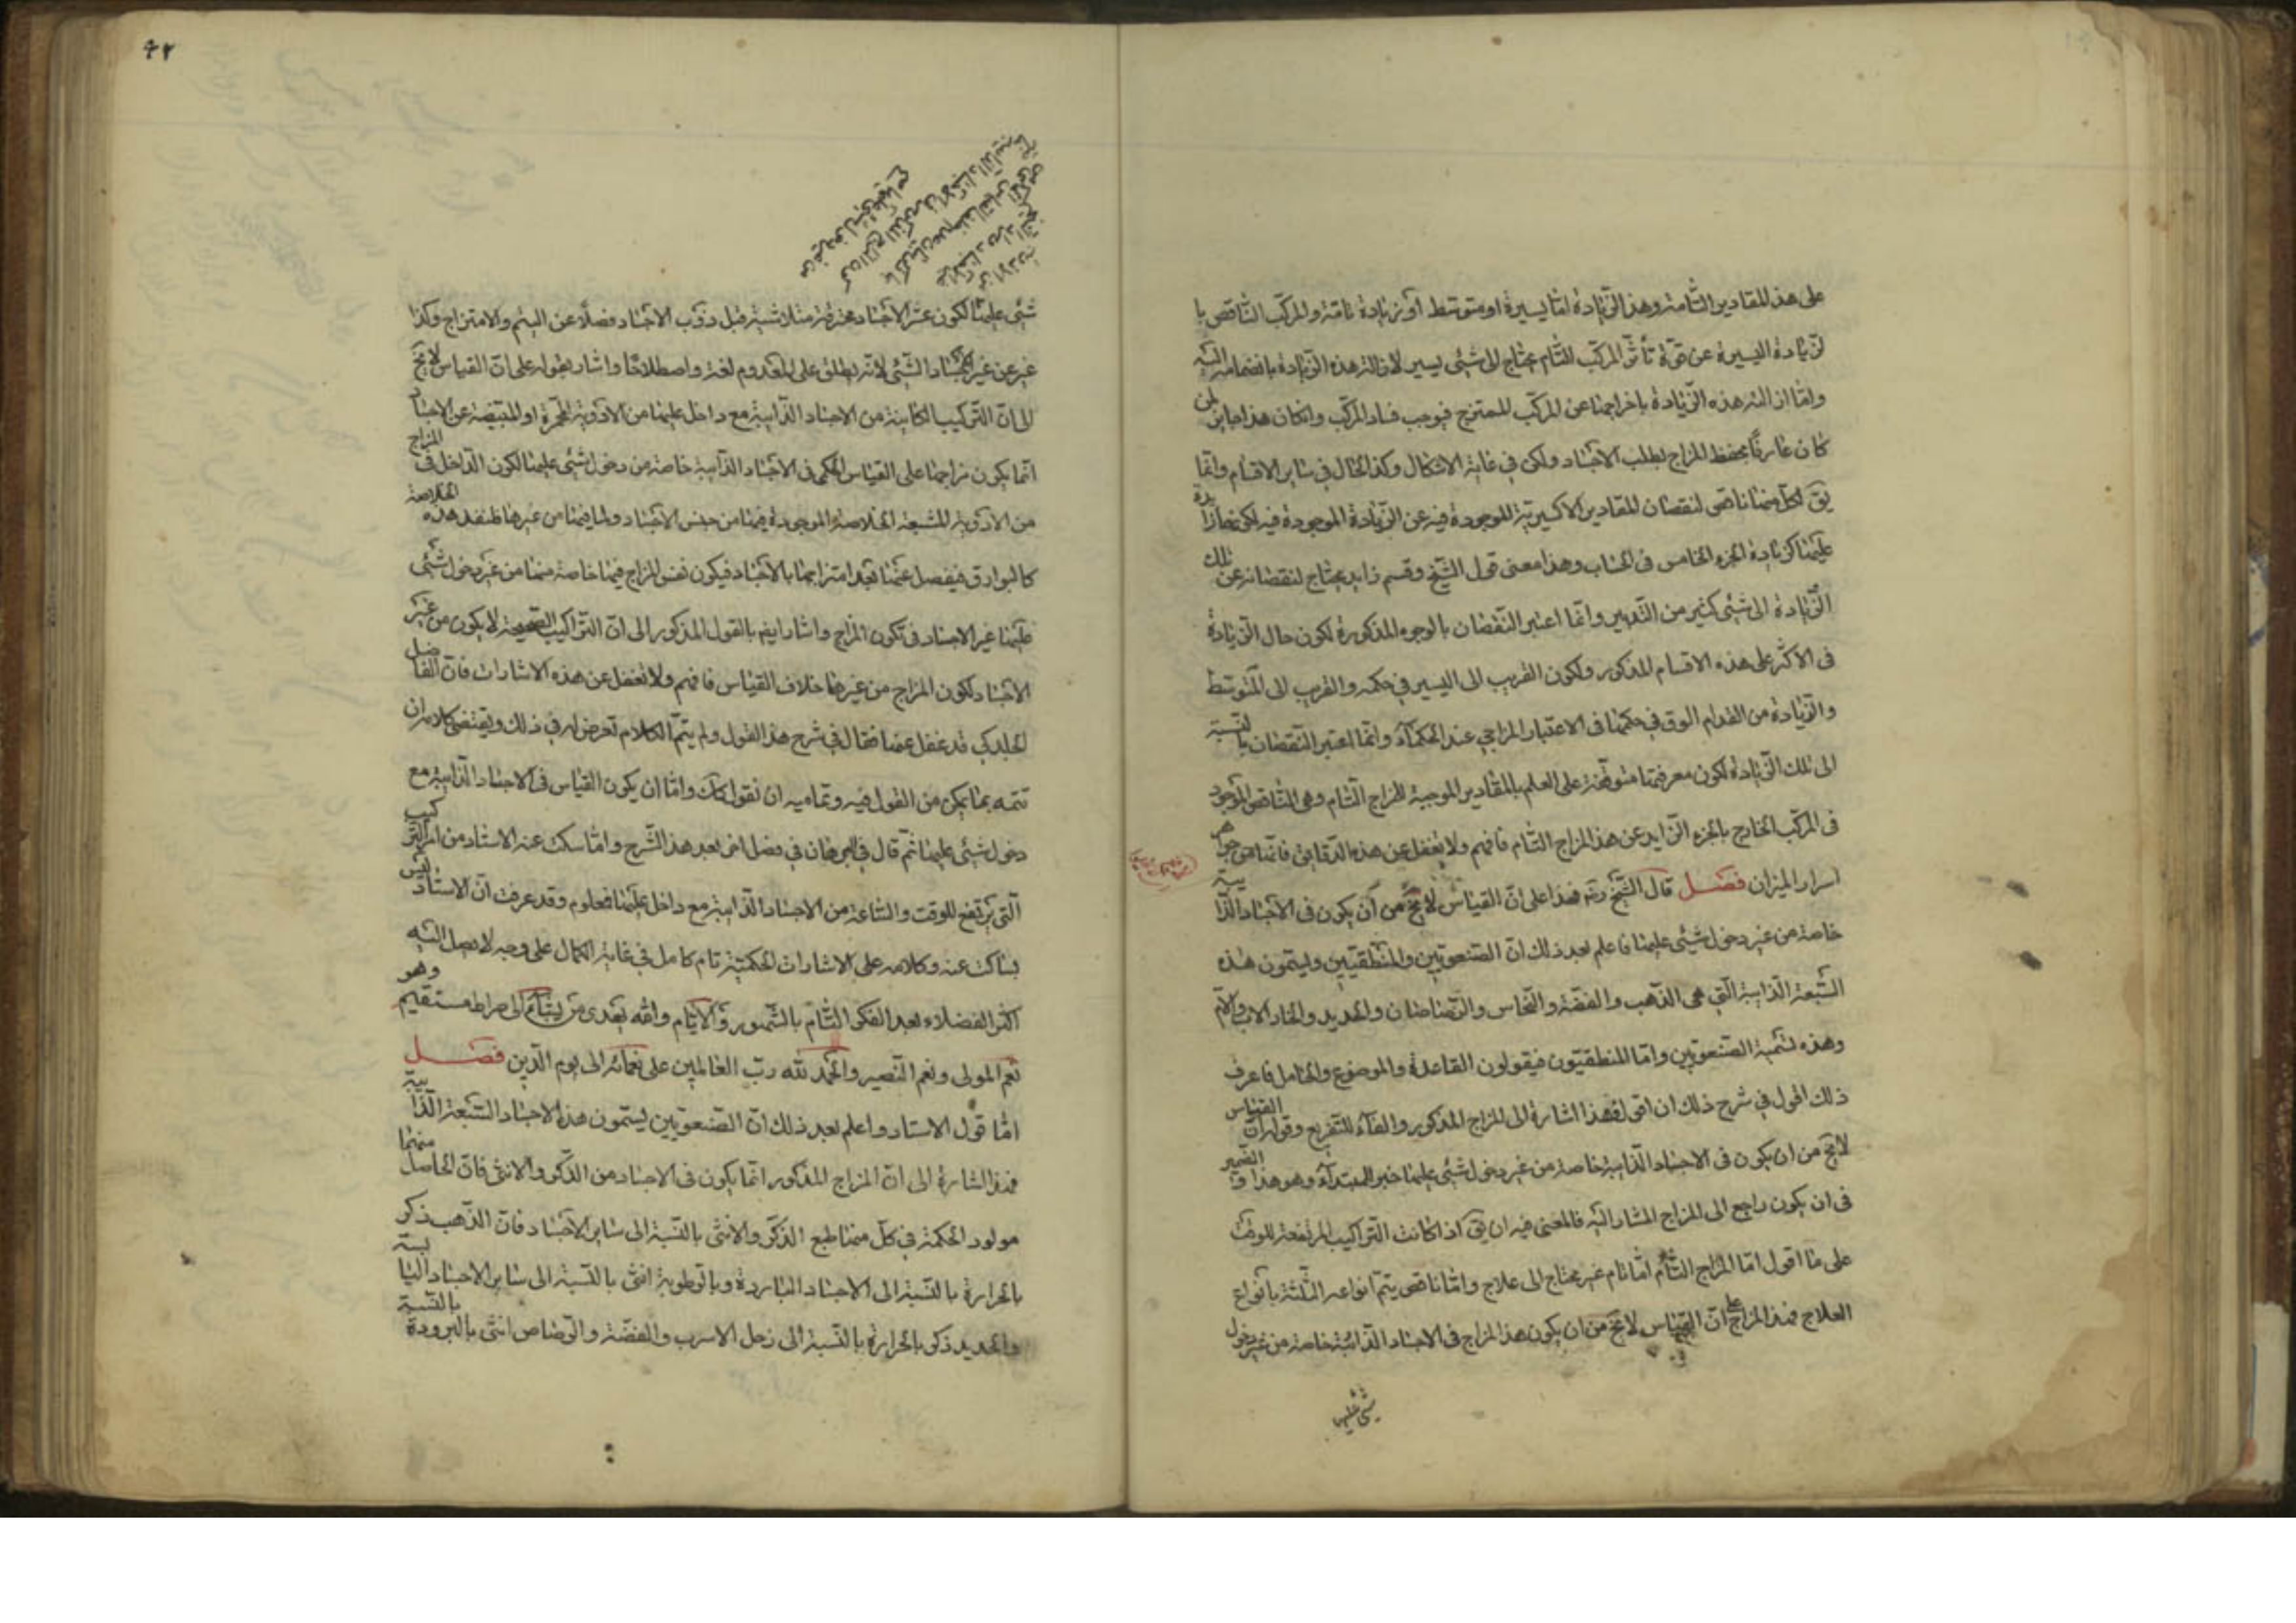 على هذا المقادير التامة وهذا الزيادة اما يسيرة او متوسط او زيادة تامة والمركب الناقص با
لزيادة اليسيرة عن قوة تأثر المركب التام يحتاج الى شئ يسير لازالة هذه الزيادة بانضمامه اليه
واما ازالة هذه الزيادة باخراجها عن المركب الممتزج فوجب فساد المركب وان كان هذا جايز لمن
كان عارفا بحفظ المزاج لطلب الاجساد ولكن في غاية الاشكال وكذا الحال في ساير الاقسام وانما
يق لكل منها ناقص لنقصان المقادير الاكسيرية الموجودة فيه عن الزيادة الموجودة فيه لكن
عليها كزيادة الجزء الخامس في الحساب وهذا معنى قول الشيخ وقسم زايد يحتاج لنقصانه عن تلك
الزيادة الى شئ كثير من التدبير وانما اعتبر النقصان بالوجوه المذكورة لكون حال الزيادة
في الاكثر على هذه الاقسام المذكور ولكون القريب الى اليسير في حكمه والقريب الى المتوسط
والزيادة من القدام الوق في حكمها في الاعتبار المزاجي عند الحكماء وانما اعتبر النقصان بالنسبة
الى تلك الزيادة لكون معرفتها متوقفة على العلم بالمقادير الموجبة للمزاج التام وهي الناقص الموجود
في المركب الخارج بالجزء الزايد عن هذا المزاج التام فافهم ولا تغفل عن هذه الدقايق فانها من جواهر
اسرار الميزان فصل قال الشيخ ره فهذا على ان القياس لا يخ من ان يكون في الاجساد الذايبة
خاصة من غير دخول شئ عليها فاعلم بعد ذلك ان الصنعويين والمنطقيين وليتمون هذه
السبعة الذايبة التي هي الذهب والفضة والنحاس والرصاصان والحديد والخار
وهذه تسمية الصنعويين واما المنطقيون فيقولون القاعدة والموضوع والحامل فاعرف
ذلك اقول في شرح ذلك ان اقوله فهذا اشارة الى المزاج المذكور والفاء للتفريع وقوله ان القياس
لا يخ من ان يكون في الاجساد الذايبة خاصة من غير دخول شئ عليها خبر المبتداء وهو هذا والضمير
في ان يكون راجع الى المزاج المشار اليه فالمعنى فيه ان يق اذا كانت التراكيب المرتفعة للوقت
على ما اقول اما المزاج التام اما تام غير محتاج الى علاج واما ناقص يتم انواعه الثلثة بانواع
العلاج فهذا المزاج على ان القياس لا يخ من ان يكون هذا المزاج في الاجساد الذائبة خاصة من غير دخول
شئ عليها
٤٢
شئ عليها لكون عشر الاجساد محترقة مثلا شبه قبل ذوب الاجساد فضلا عن البثم والامتزاج وكذا
عبر عن غير الاجساد الشئ لانه يطلق على المعدوم لغة واصطلاحا واشار بقوله على ان القياس لا يخ
الى ان التركيب الكاينة من الاجساد الذايبة مع داخل عليها من الادوية المحمرة او المبيضة عن الاجساد
انما يكون مزاجها على القياس الحكمى في الاجساد الذايبة خاصة من دخول شئ عليها لكون الداخل في المزاج
من الادوية المشبعة الخلاصة الموجودة فيها من جنس الاجساد ولما فيها من غيرها هذه الخلاصة
كالبوارق فينفصل عنها بعد امتزاجها بالاجساد فيكون نفس المزاج فيها خاصة منها من غير دخول شئ
عليها غير الاجساد في تكون المزاج واشار ايضم بالقول المذكور الى ان التراكيب الصحيحة لا يكون من غير
الاجساد لكون المزاج من غيرها خلاف القياس فافهم ولا تغفل عن هذه الاشارات فان الفاضل
الجلدكى قد غفل عنها فقال في شرح هذا القول ولم يتم الكلام تعرض له في ذلك ويقتضى كلامه ان
تتمه بما يمكن من القول فيه وتماميه ان نقول كك واما ان يكون القياس في الاجساد الذايبة مع
دخول شئ عليها ثم قال في البرهان في فصل اخر بعد هذا الشرح واما سكت عنه الاستاد من امر التركيب
التى يرتفع للوقت والساعة من الاجساد الذايبة مع داخل عليها فمعلوم وقد عرفت ان الاستاد ليس
بساكت عنه وكلامه على الاشارات الحكمية تام كامل في غاية الكمال على وجه لا يصل اليه
اكثر الفضلاء بعد الفكر التام بالشهور والايام والله يهدى من يشاء الى صراط مستقيم وهو
نعم المولى ونعم النصير والحمد لله رب العالمين على نعمائه الى يوم الدين فصل
اما قول الاستاد واعلم بعد ذلك ان الصنعويين ليسمون هذا الاجساد السبعة الذايبة
فهذا اشارة الى ان المزاج المذكور انما يكون في الاجساد من الذكر والانثى فان الحاصل منهما
مولود الحكمة في كل منها طبع الذكر والانثى بالنسبة الى ساير الاجساد فان الذهب ذكر
بالحرارة بالنسبة الى الاجساد الباردة وبالرطوبة انثى بالنسبة الى ساير الاجساد اليابسة
والحديد ذكر بالحرارة بالنسبة الى زحل الاسرب والفضة والرصاص انثى بالبرودة بالنسبة